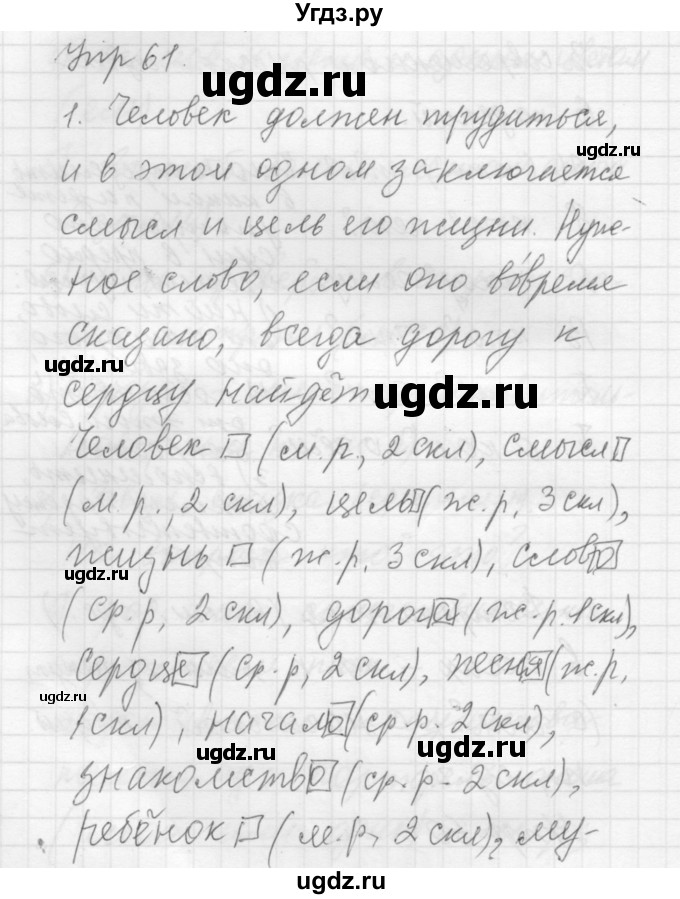 Угдз.ру
Упр 61.
ugdz.ru
1. Человек должен трудиться,
ugdz.ru
и в этом одном заключается
смысл и цель его жизни. Нуж-
ное слово, если оно вовремя
сказано, всегда дорогу к
ugdz.ru
сердцу найдёт
ugdz.ru
Человек□ (м.р., 2 скл), смысл□
(м.р., 2 скл), цель□ (ж.р, 3 скл),
жизнь□ (ж.р, 3 скл), слово
ugdz.ru
(ср.р, 2 скл), дорога (ж.р. 1 скл),
сердце (ср.р, 2 скл), песня (ж.р,
ugdz.ru
1 скл), начало (ср.р. 2 скл),
ugdz.ru
ugdz.ru
знакомство (ср.р - 2 скл),
ребёнок□ (м.р, 2 скл), му-
ugdz.ru